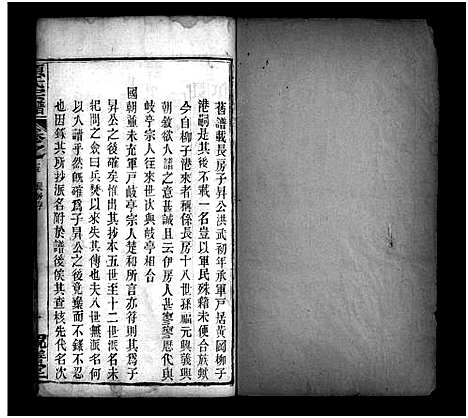 舊譜載長房子昇公洪武初年承軍戸居黄岡柳子
港嗣是其後不載一名豈以軍民殊籍未便合族歟
今自柳子港來者稱係長房十八世孫騸元興義興
朝敘欲入譜之意甚誠且云伊房人甚寥寥歷代與
岐亭宗人往來世次與岐亭相合
國朝並未充軍戸岐亭宗人楚和所言亦符則其爲子
昇公之後確矣惟出其抄本五世至十二世派名未
祀問之僉曰兵燹以來失其傳也夫八世無派名何
以入譜乎然旣確爲子昇公之後竟棄而不錄不忍
也因錄其所抄派名附於譜後俟其查核先代名次